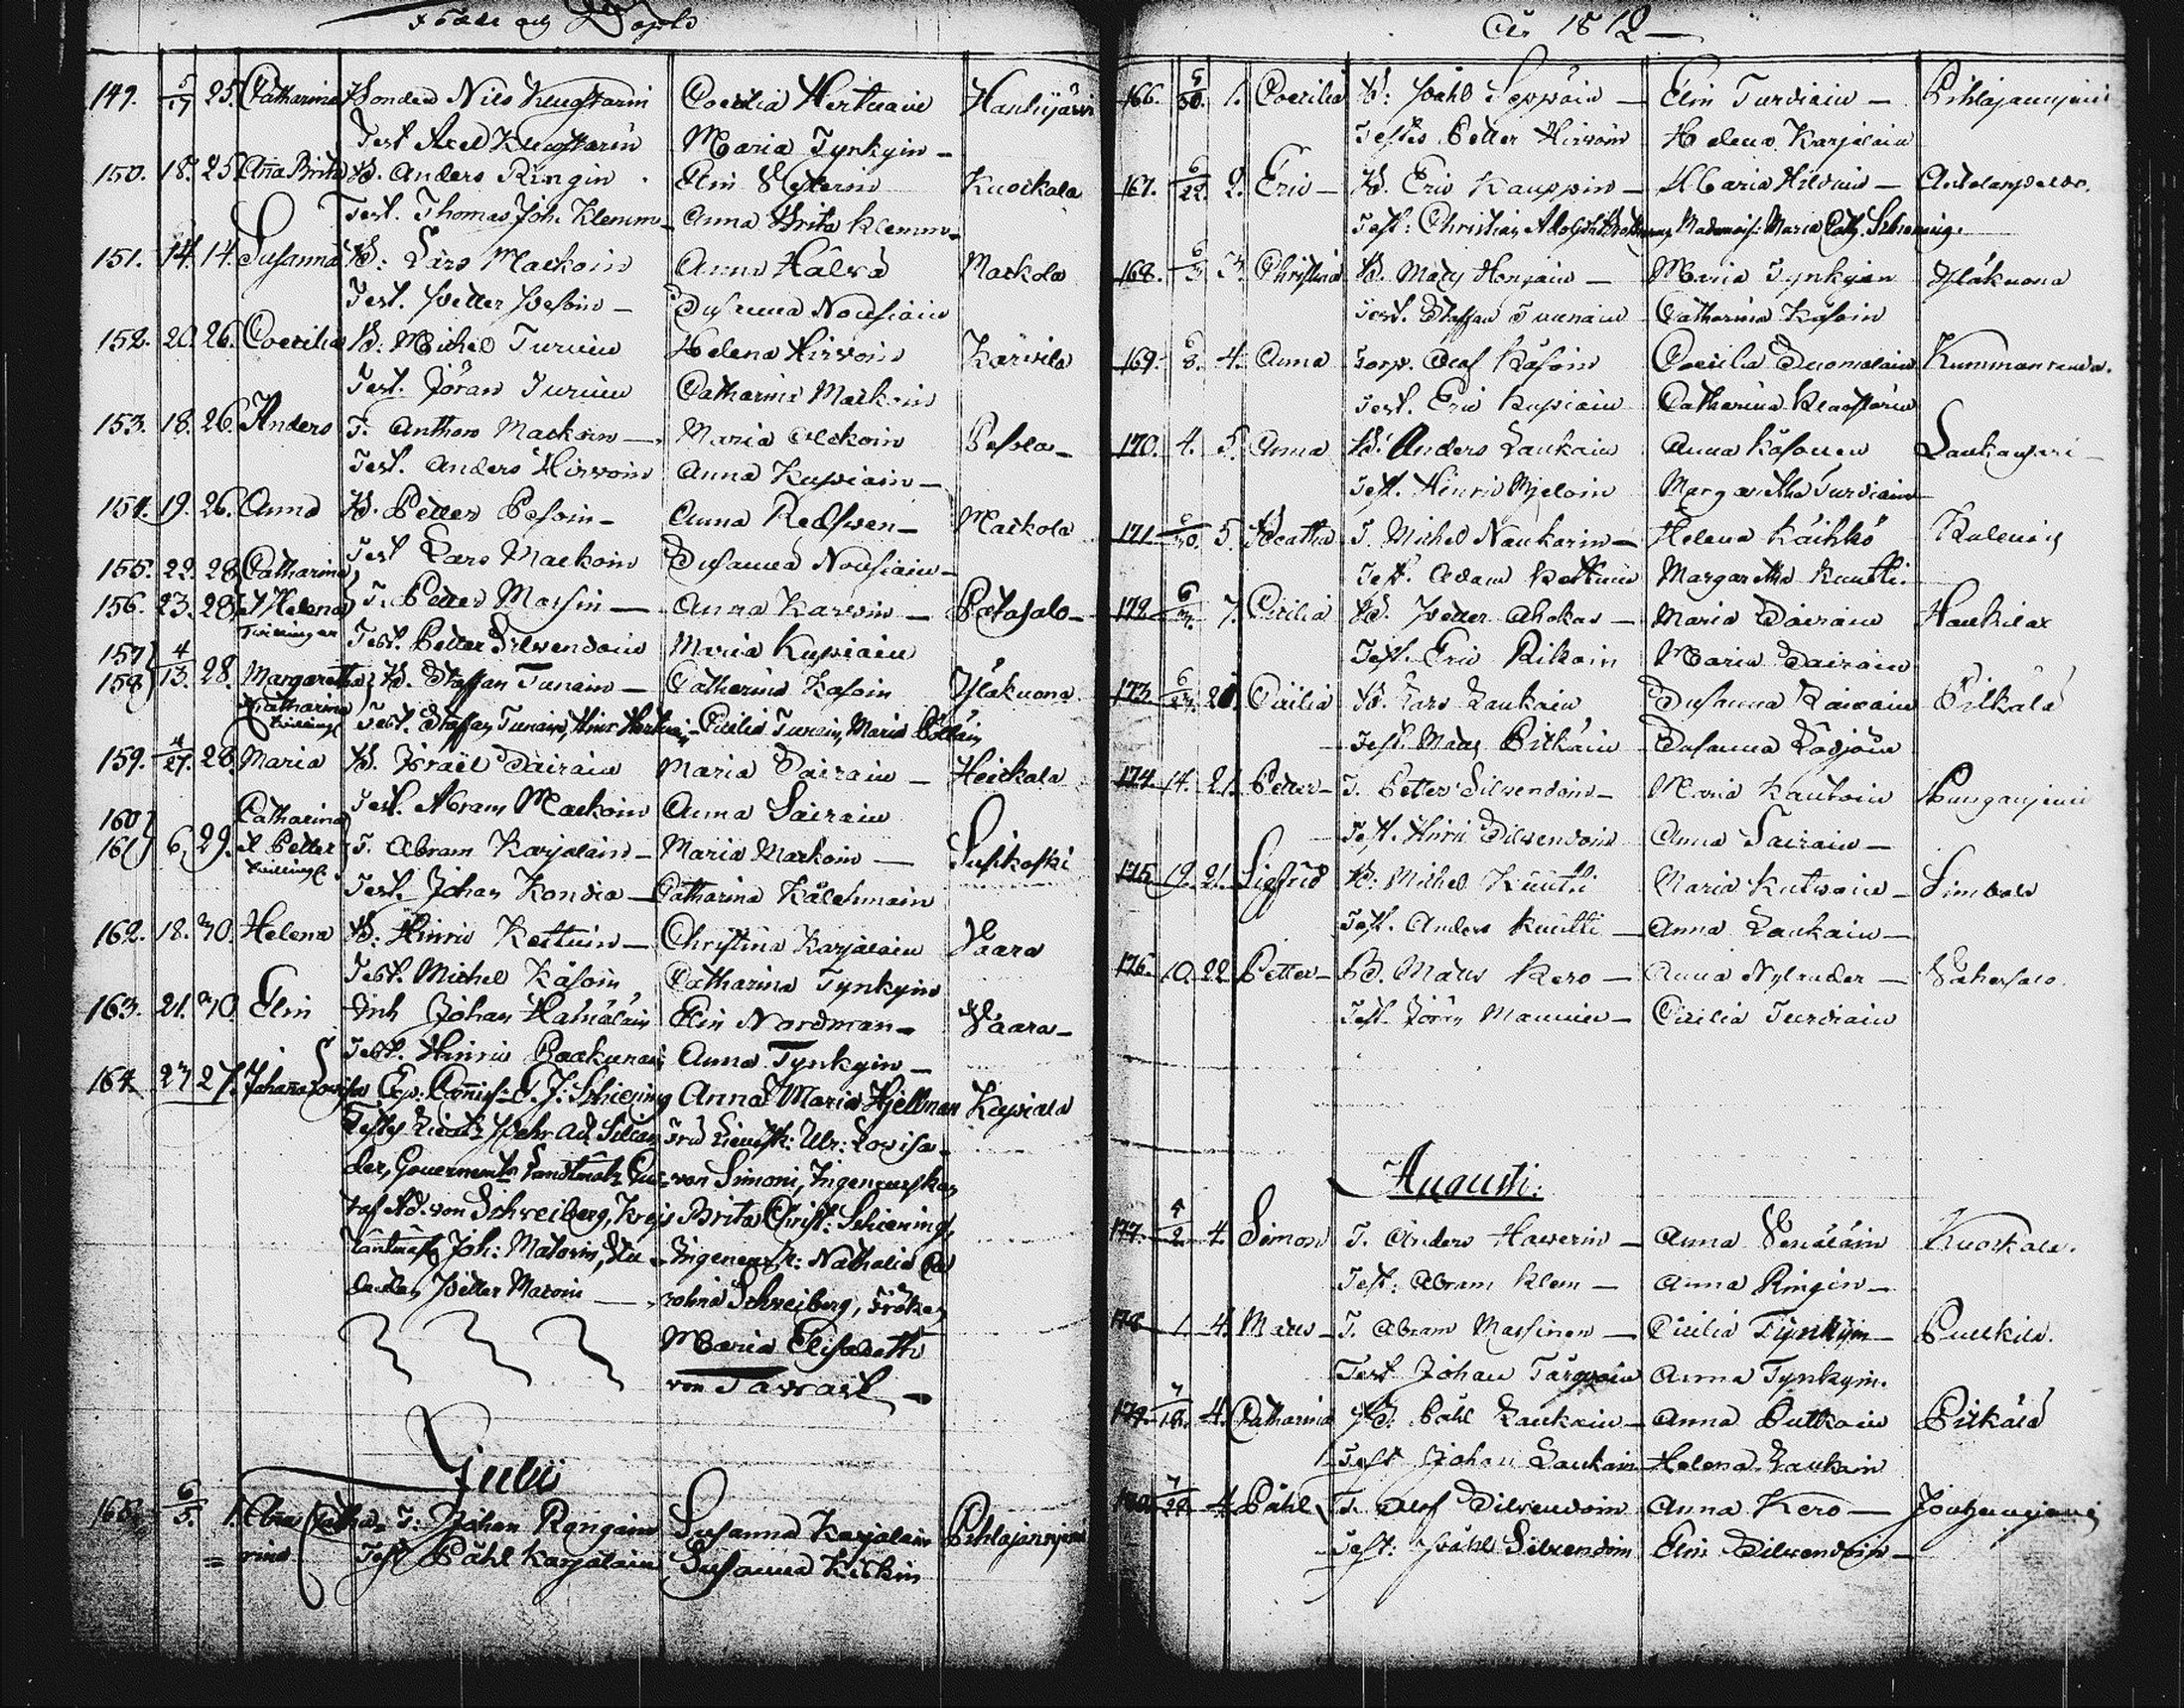 Födde och Döpte
149. 5/17 25. Catharina Bonden Nils Klugstarin Coecilia Hertuain Hauhijärvi
Test Axel Klugstarin Maria Tynkyin
150. 18. 25. Aña Brita B. Anders Ringin Elin Kuockala
Test. Thomas Joh. Klemm Anna Brita Klemm
151. 14. 14. Susanna B: Lars Mackoin Anna Halva Mackola
Test. Petter Pesoin Susanna Nousiain
152. 20. 26. Coecilia B: Michel Turuin Helena Hirvoin Karvila
Test. Jöran Turuin Catharina Mackoin
153. 18. 26. Anders T. Anthon Mackoin Maria Ålckoin Pesola
Test. Anders Hirvoin Anna Kupiain
154. 19. 26. Anna B. Petter Pesoin Anna Redsven Mackola
Test Lars Mackoin Susanna Nousiain
155. 22. 28 Catharina
156. 23. 28 & Helena T. Petter Massin Anna Karvin Patasalo
Twillingar Test. Petter Silvendoin Maria Kupiain
157
158 4/13. 28. Margaretha B. Staffan Tunain Catharina Kasoin Ylåkuona
& Catharina Test. Staffan Tunain, Hinr Hertuain Cicilia Tunain, Maria
159. 4/27. 28. Maria B. Israël Sairain Maria Sairain Heickala
Test. Abram Mackoin Anna Sairain
160 Catharina
161 6. 29. & Petter T. Abram Karjalain Maria Mackoin
Test. Johan Kondia Catharina Kälehmain
162. 18. 30. Helena B: Hinric Kettuin Christina Karjalain Vaara
Test. Michel Käsoin Catharina Tynkyin
163. 21. 30. Elin Inh Johan Hatuälain Elin Nordman Vaara
Test. Hinric Paakunain Anna Tynkyin
164. 23 27. Johaña Lovisa Exp: Comiss: C. J: Schiening Anna Maria Hjellman Kupiala
Testes Lieutn Pehr Ad. Silian Fru Lieutsk: Ulr: Lovisa
der, Gouvernements Landtmät Gus von Simoni, Ingenieurskan
taf Ad. von Schreiberg, Krejs Brita Christ: Schiening,
Landtmät Joh: Matoin, Stu Ingenieursk: Nathalia Ca
denten Petter Matoin rolina Schreiberg, Fröken
Maria Elisabeth
von Tavrast
Julii
165. 6/5. 1. Aña Catha T: Johan Rongain Susanna Karjalain Pihlajanjemi
rina Test Påhl Karjalain Susanna Kickin
År 1812
166. 5/30. 1. Coecilia B: Påhl Seppäin Elin Turdiain Pihlajanjemi
Testes Petter Hirvoin Helena Karjalain
167. 6/22. 2. Eric B. Eric Kauppin Maria Hilduin Andolanpelto.
Test: Christian Adolph Mademois: Maria Cath. Schiening.
168. 6/3. 3. Christina B. Mats Honjain Maria Tynkyin Ylåkuona
Test. Staffan Tunain Catharina Kasoin
169. 6/3. 4. Anna Corp. Olof Käsoin Coecilia Suomalain Kummanranda.
Test. Eric Kupiain Catharina Klaastarin
170. 4. 5. Anna B: Anders Laukain Anna Käsonen Laukansari
Test. Hinric Mjeloin Margaretha Turdiain
171. 6/30. 5. Beatha T. Michel Naukarin Helena Käihkö
Test. Adam Kettuin Margaretha Kuutti.
172. 6/7. 7. Cicilia B. Petter Ahokas Maria Sairain Haukilax
Test. Eric Rikoin Maria Sairain
173. 6/27. 20. Cicilia B. Lars Laukain Susanna Laurain Pitkälä
Test. Mats Pitkäin Susanna
174. 14. 21. Petter T. Petter Silvendoin Maria Kautoin Punganjemi
Test. Hinric Silvendoin Anna Sairain
175. 19. 21. Sigfrid B: Michel Kuutti Maria Kutvoin Simbala
Test. Anders Kuutti Anna Laukain
176. 10. 22 Petter B. Mats Kero Anna Nylander Vahersalo.
Test. Jöran Mannin Cicilia Turdiain
Augusti.
177. 4/2. 4. Simon T. Anders Haverin Anna Venäläin Kuockala.
Test: Abram Klem Anna Ringin
178. 1. 4. Mats T. Abram Massinen Cicilia Tynkyin Pullkila.
Test Johan Anna Tynkyin.
179. 7/18. 4. Catharina B. Påhl Laukain Anna Putkoin Pitkälä
Test Johan Laukain Helena Laukain
180. 7/22. 4. Påhl T. Olof Silvendoin Anna Kero
Test: Påhl Silvendoin Elin Silvendoin